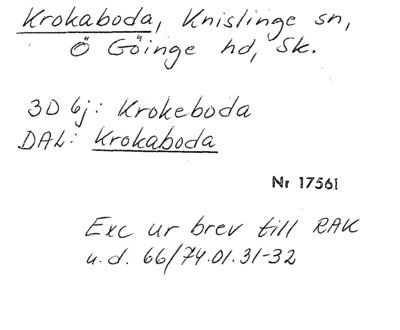 Krokaboda, Knislinge sn,
Ö Göinge hd, Sk.
3D 6j: Krokeboda
DAL: Krokaboda
Nr 17561
Exc ur brev till RAK
u.d. 66/74.01.31-32